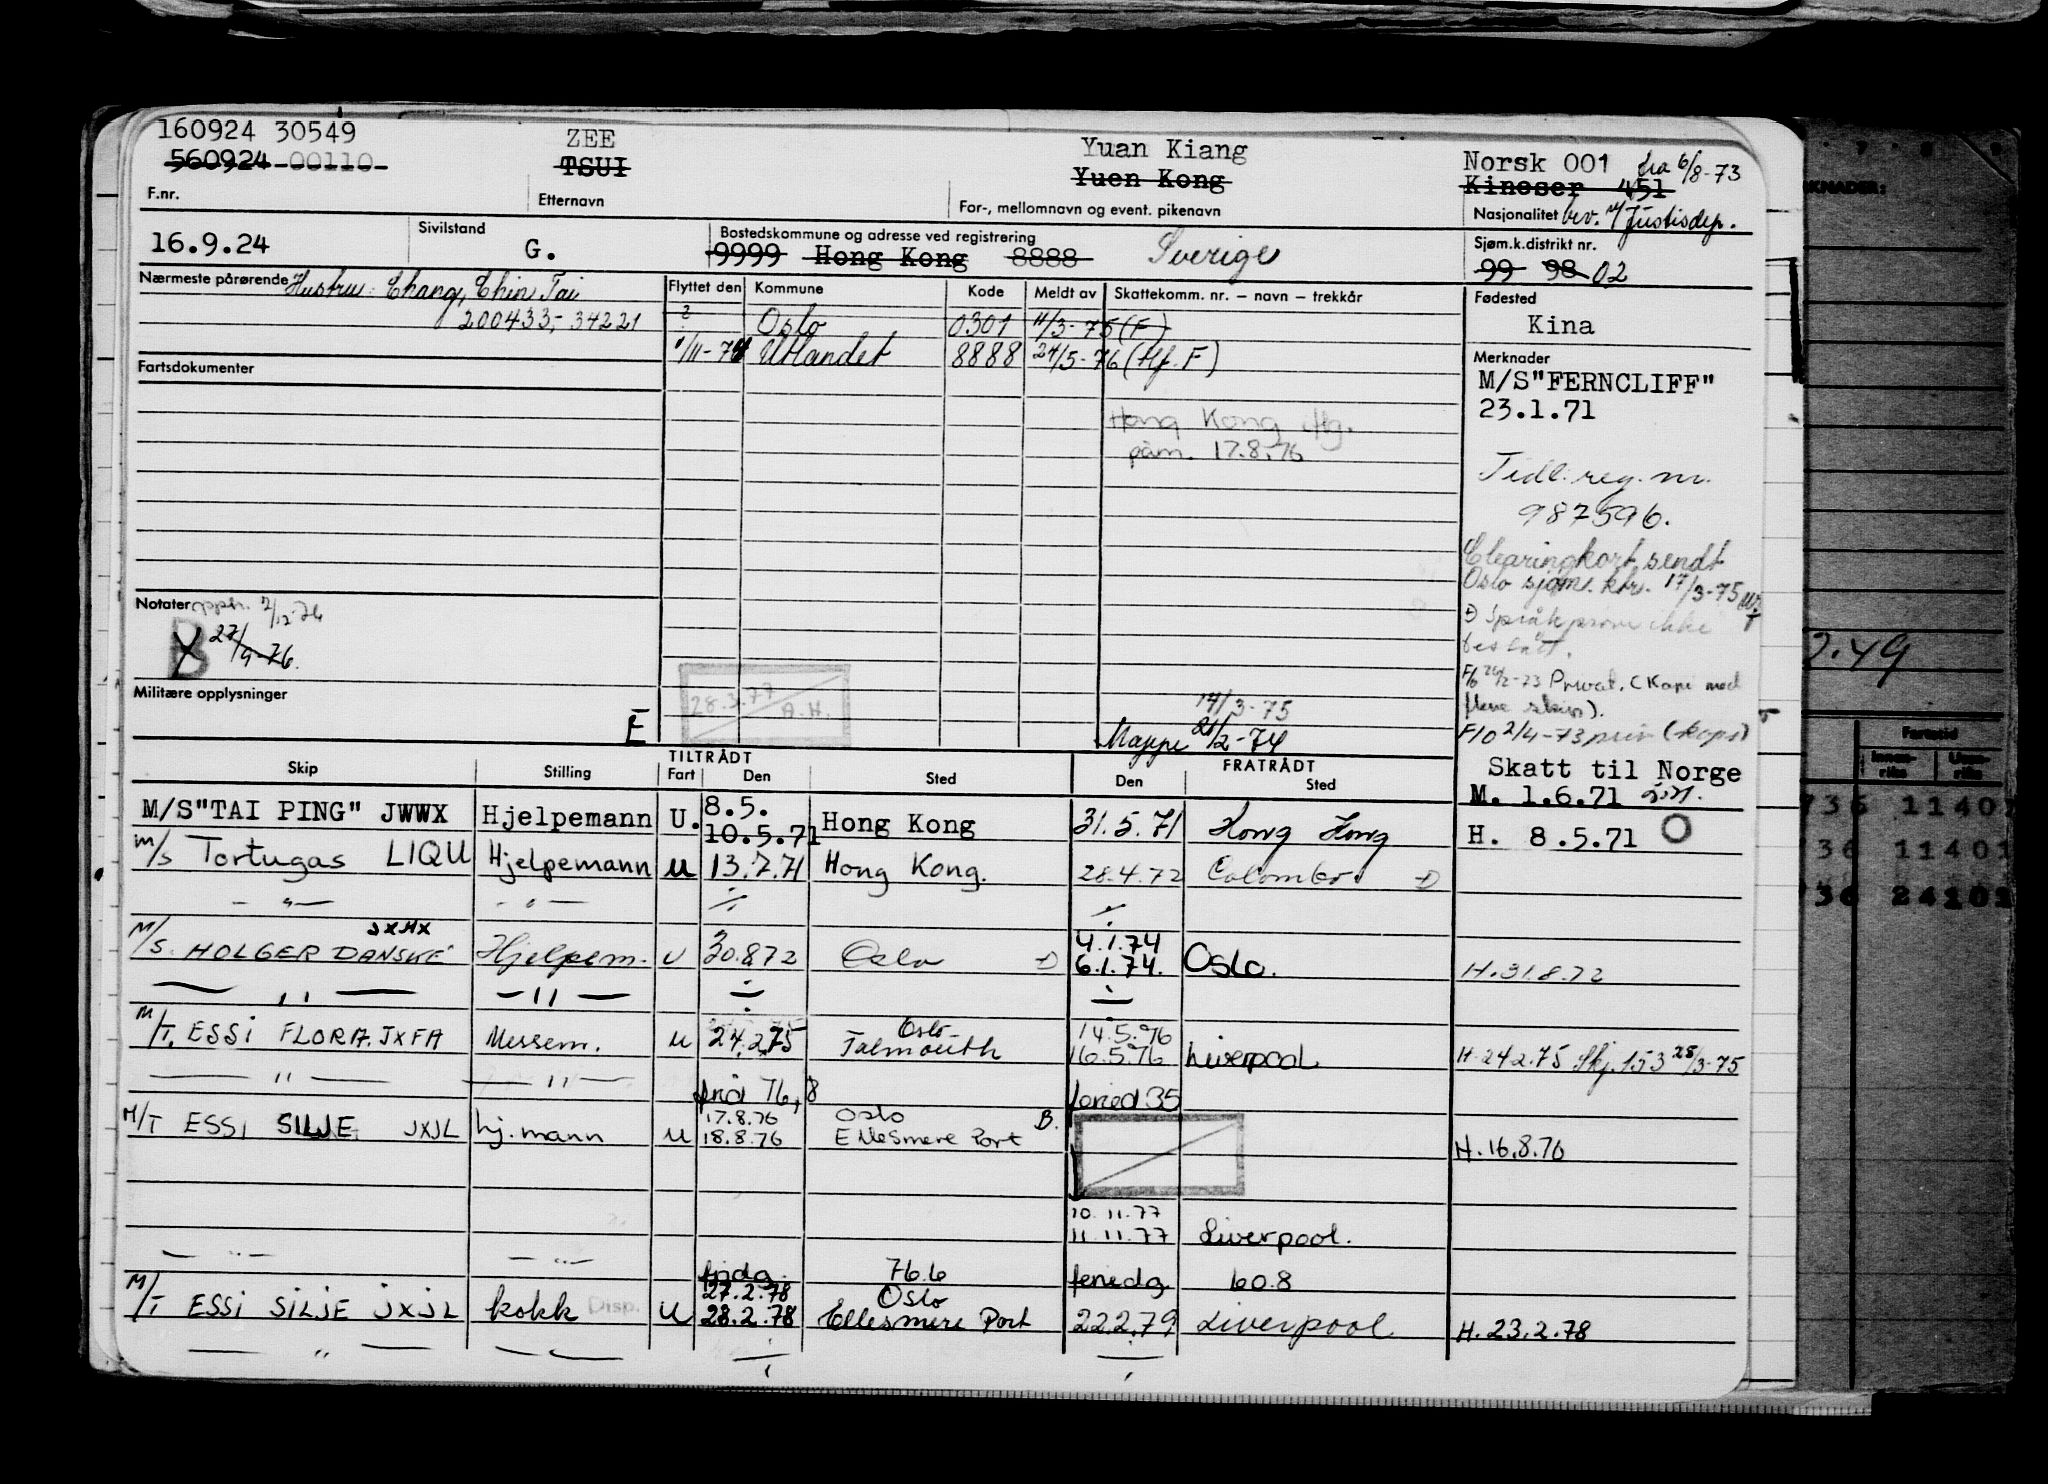 160924 30549
560924 00110
ZEE
TSUI
Yuan Kiang
Yuen Kong
Norsk 001 fra 6/8-73
Kineser 451
F.nr.
Etternavn
For-, mellomnavn og event. pikenavn
Nasjonalitet bev. v/Justisdep.
16.9.24
Sivilstand
G.
Bostedskommune og adresse ved registrering
9999 Hong Kong 8888 Sverige
Sjøm.k.distrikt nr.
99 98 02
Nærmeste pårørende Hustru: Chang, Chin Tai
200433,- 34221
Flyttet den Kommune Kode Meldt av Skattekomm. nr. – navn – trekkår
? Oslo 0301 11/3-75 (F)
1/11-74 Utlandet 8888 24/5-76 (tlf. F)
Hong Kong
påm. 17.8.76
Fødested
Kina
Merknader
M/S"FERNCLIFF"
23.1.71
Tidl. reg. nr.
987596.
Clearingkort sendt
Oslo sjøm. ktr. 17/3-75
Språkprøve ikke
bestått.
F/6 26/2-73 Privat. (Kopi med
flere skriv).
F/0 2/4-73 priv (kopi)
Fartsdokumenter
Notater opph. 7/12-76
B
27/9-76.
Militære opplysninger
E
28.3.77
A.H.
14/3-75
Mappe 21/2-74
Skatt til Norge
M. 1.6.71
H. 8.5.71
TILTRÅDT
FRATRÅDT
Skip Stilling Fart Den Sted Den Sted
M/S"TAI PING" JWWX Hjelpemann U. 8.5.
10.5.71 Hong Kong 31.5.71 Hong Kong
M/S Tortugas LIQU Hjelpemann U 13.7.71 Hong Kong. 28.4.72 Colombo.
- " - - " - ÷ ÷
JXHX
M/S. HOLGER DANSKE Hjelpem. U 30.8.72 Oslo 4.1.74
6.1.74. Oslo. H.31.8.72
— " — — " — ÷ ÷
M/T. ESSI FLORA. JXFA Messem. U 24.2.75 Oslo-
Falmouth 14.5.76
16.5.76 Liverpool H.24.2.75 Skj.153 25/3-75
— " — — " —
frid 76,8 feried 35
M/T ESSI SILJE JXJL hj.mann U 17.8.76 Oslo
18.8.76 Ellesmere Port B. H.16.8.76
10.11.77
11.11.77 Liverpool.
— " — — " —
fridg. 76.6 feriedg 60.8
M/T ESSI SILJE JXJL kokk Disp. U 27.2.78 Oslo
28.2.78 Ellesmere Port 22.2.79 Liverpool H.23.2.78
— " — ÷ ÷
KNADER:
2.49
Fartstid
Innen-
riks
Uten-
riks
736 11401
736 11401
736 24101